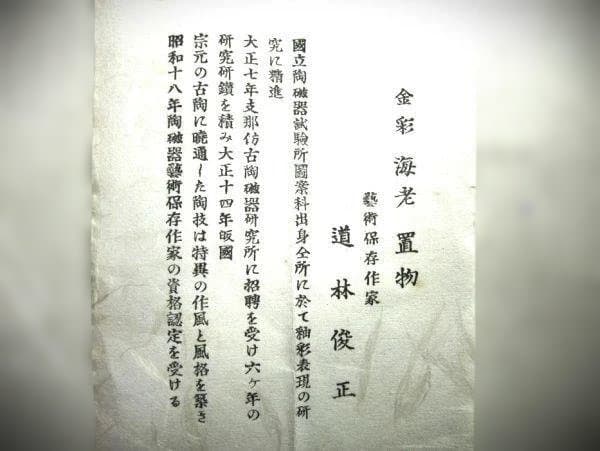 金彩 海老 置物
藝術保存作家
道林俊正
國立陶磁器試驗所圖案科出身仝所に於て釉彩表現の研
究に精進
大正七年支那仿古陶磁器研究所に招聘を受け六ヶ年の
研究研鑽を積み大正十四年皈國
宗元の古陶に曉通した陶技は特異の作風と風格を築き
昭和十八年陶磁器藝術保存作家の資格認定を受ける